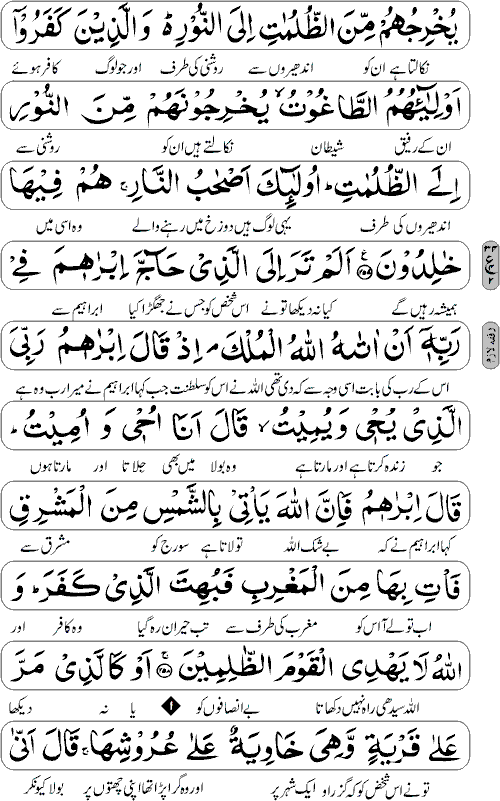 يُخْرِجُهُمْ مِّنَ الظُّلُمٰتِ اِلَى النُّوْرِ وَالَّذِيْنَ كَفَرُوْۤا
نکالتا ہے ان کو اندھیروں سے روشنی کی طرف اور جو لوگ کافر ہوئے
اَوْلِيٰٓـُٔهُمُ الطَّاغُوْتُ يُخْرِجُوْنَهُمْ مِّنَ النُّوْرِ
ان کے رفیق شیطان نکالتے ہیں ان کو روشنی سے
اِلَى الظُّلُمٰتِ اُولٰٓئِكَ اَصْحٰبُ النَّارِ هُمْ فِيْهَا
اندھیروں کی طرف یہی لوگ ہیں دوزخ میں رہنے والے وہ اسی میں
خٰلِدُوْنَ اَلَمْ تَرَ اِلَى الَّذِيْ حَآجَّ اِبْرٰهٖمَ فِيْ
ہمیشہ رہیں گے کیا نہ دیکھا تو نے اس شخص کو جس نے جھگڑا کیا ابراہیم سے
رَبِّهٖۤ اَنْ اٰتٰىهُ اللّٰهُ الْمُلْكَ اِذْ قَالَ اِبْرٰهٖمُ رَبِّيَ
اس کے رب کی بابت اسی وجہ سے کہ دی تھی اللہ نے اس کو سلطنت جب کہا ابراہیم نے میرا رب وہ ہے
الَّذِيْ يُحْيٖ وَيُمِيْتُ قَالَ اَنَا اُحْيٖ وَ اُمِيْتُ
جو زندہ کرتا ہے اور مارتا ہے وہ بولا میں بھی جِلاتا اور مارتا ہوں
قَالَ اِبْرٰهٖمُ فَاِنَّ اللّٰهَ يَاْتِيْ بِالشَّمْسِ مِنَ الْمَشْرِقِ
کہا ابراہیم نے کہ بے شک اللہ تو لاتا ہے سورج کو مشرق سے
فَاْتِ بِهَا مِنَ الْمَغْرِبِ فَبُهِتَ الَّذِيْ كَفَرَ وَ
اب تو لے آ اس کو مغرب کی طرف سے تب حیران رہ گیا وہ کافر اور
اللّٰهُ لَا يَهْدِي الْقَوْمَ الظّٰلِمِيْنَ اَوْ كَالَّذِيْ مَرَّ
اللہ سیدھی راہ نہیں دکھاتا بے انصافوں کو یا نہ دیکھا
عَلٰى قَرْيَةٍ وَّهِيَ خَاوِيَةٌ عَلٰى عُرُوْشِهَا قَالَ اَنّٰى
تو نے اس شخص کو کہ گزرا وہ ایک شہر پر اور وہ گرا پڑا تھا اپنی چھتوں پر بولا کیونکر